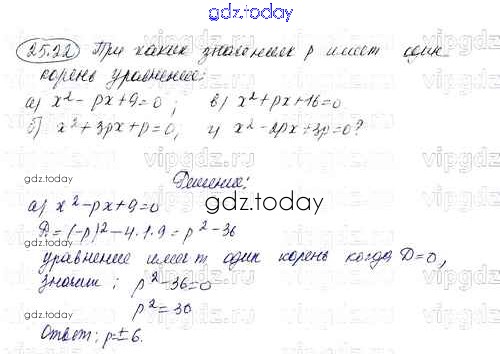 gdz.today
25.22 При каких значениях p имеет один
корень уравнение:
а) x²-px+9=0; в) x²+px+16=0
б) x²+3px+p=0, г) x²-2px+3p=0?
Решение:
gdz.today
а) x²-px+9=0
D=(-p)²-4·1·9=p²-36
уравнение имеет один корень когда D=0,
значит: p²-36=0
p²=36
Ответ: p=±6.
gdz.today